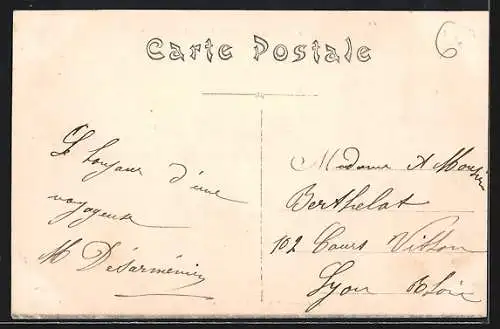 Carte Postale
6
Le bonjour d'une
voyageuse
M Désarménien
Madame et Monsieur
Berthelat
102 Cours Vitton
Lyon Rhône